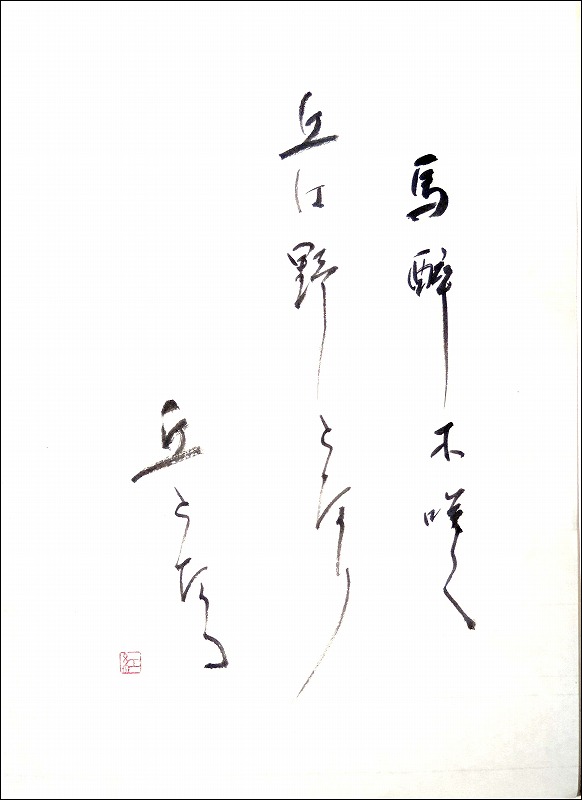 馬酔木咲く
近江野となり
丘となる